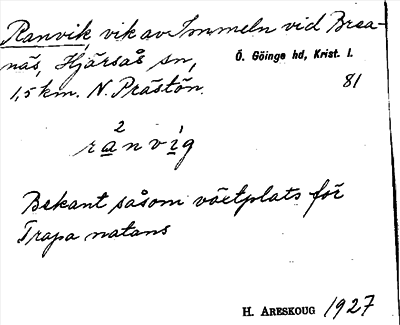 Ranvik, vik av Immeln vid Brea-
näs, Hjärsås sn, Ö. Göinge hd, Krist. l.
1,5 km. N. Prästön. 81
2 1
ranvig
Bekant såsom växtplats för
Trapa natans
H. ARESKOUG 1927